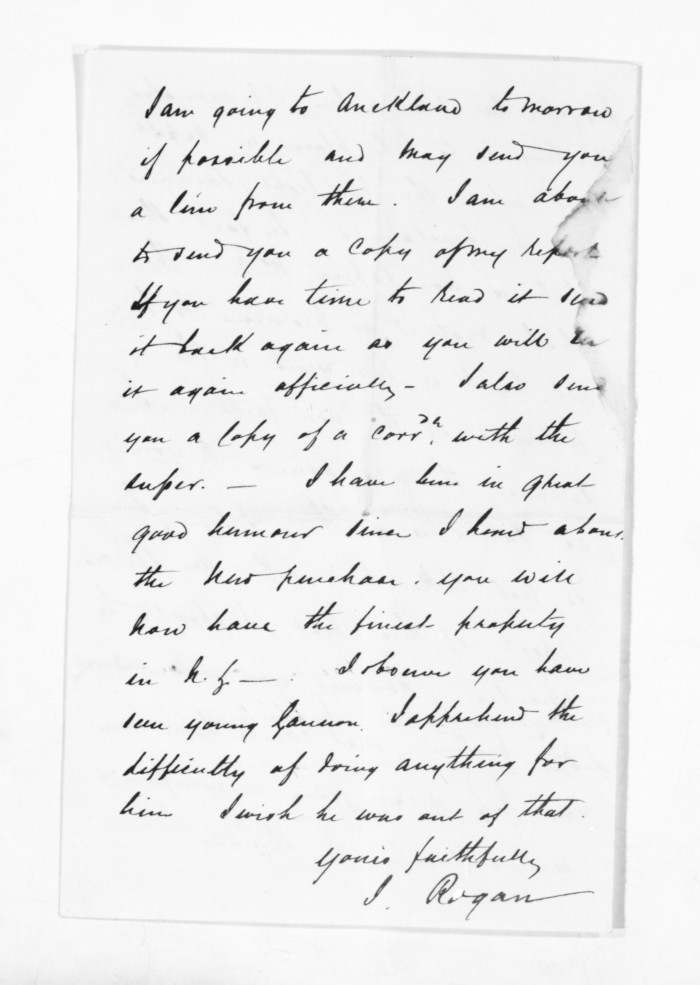 I am going to Auckland tomorrow
if possible and may send you
a line from there. I am about
to send you a copy of my report
If you have time to read it send
it back again as you will
it again officially - I also send
you a copy of a corrdn. with the
super. - I have been in great
good humour since I heard about
the new purchase. you will
now have the finest property
in N. Z. - I observe you have
seen young Gannon. I apprehend the
difficulty of doing anything for
him I wish he was out of that.
Yours faithfully
J. Rogan